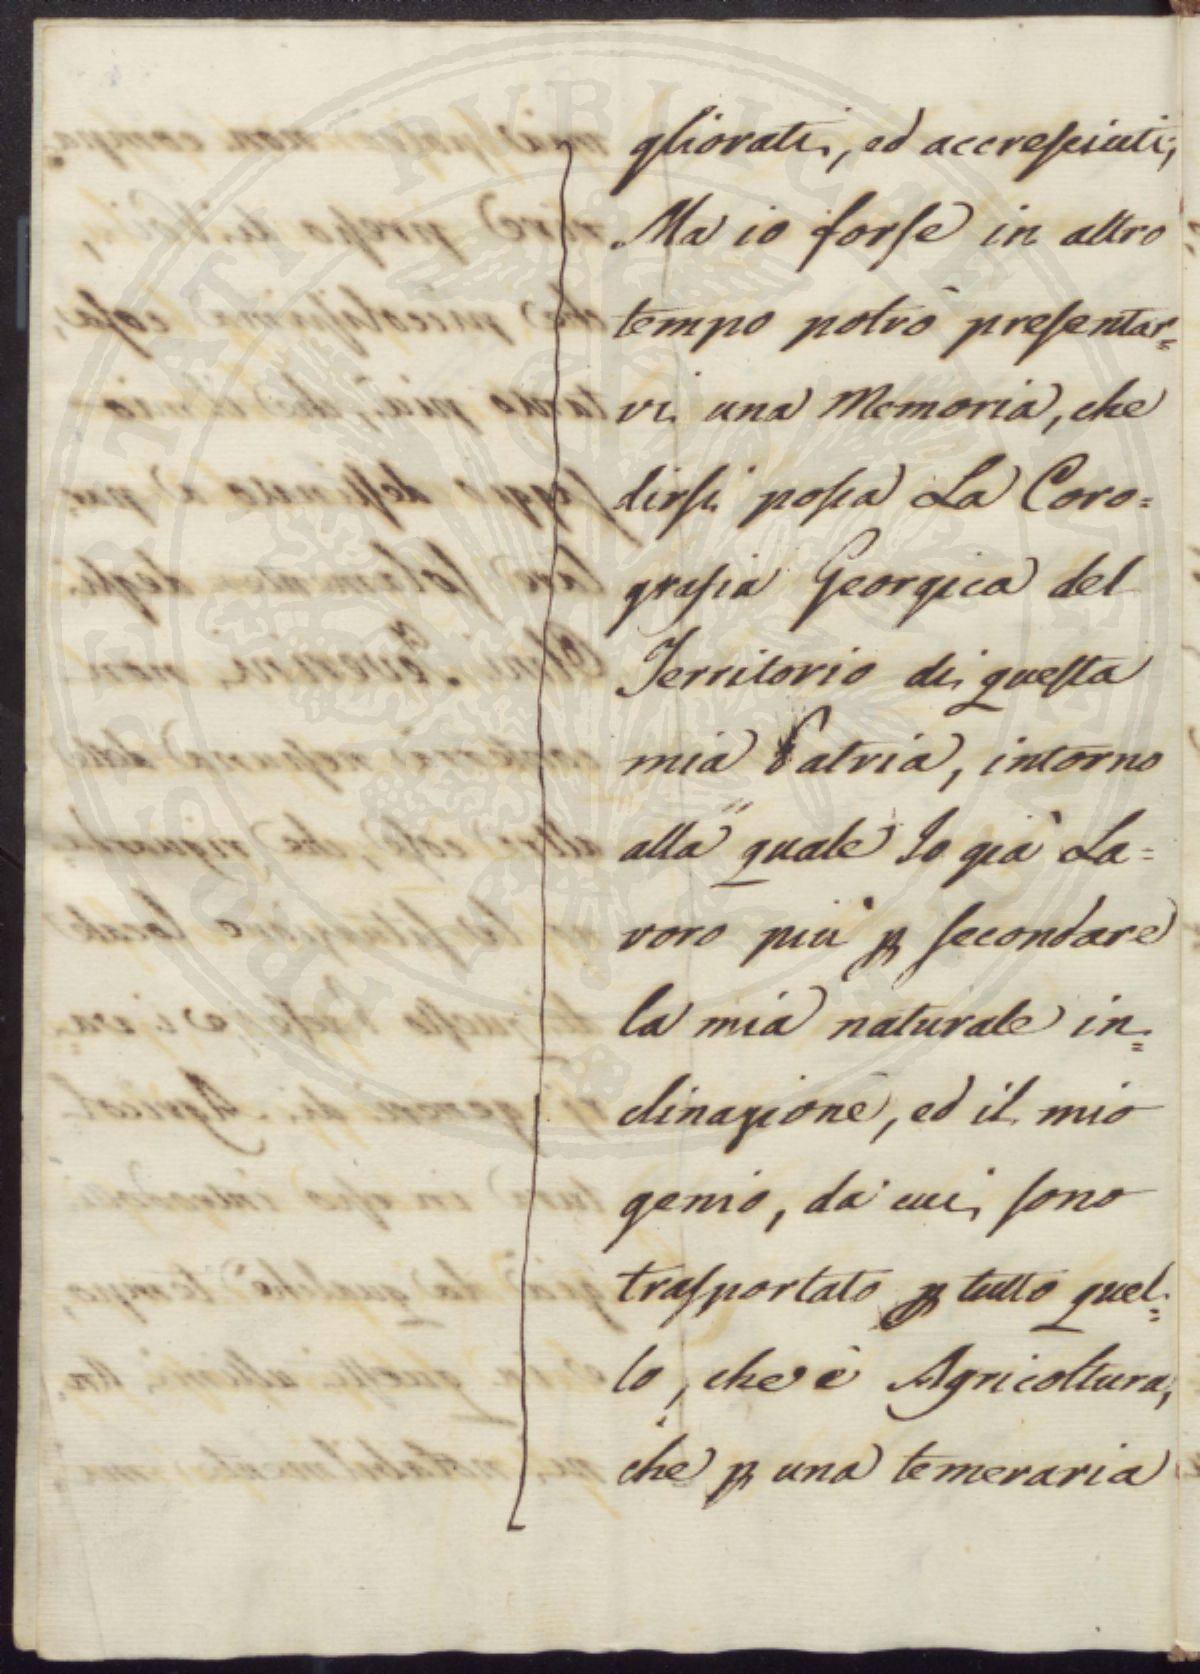 gliorati, ed accresciuti;
Ma io forse in altro
tempo potrò presentar=
vi una Memoria, che
dirsi possa La Coro=
grafia Georgica del
Territorio di questa
mia Patria, intorno
alla quale Io già La=
voro più p secondare
la mia naturale in=
clinazione, ed il mio
genio, da cui sono
trasportato p tutto quel=
lo, che è Agricoltura,
che p una temeraria